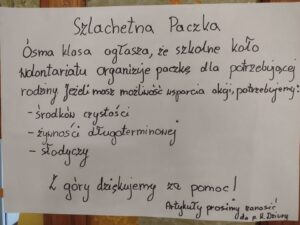 Szlachetna Paczka
Ósma klasa ogłasza, że szkolne koło
wolontariatu organizuje paczkę dla potrzebującej
rodziny. Jeżeli masz możliwość wsparcia akcji, potrzebujemy:
- środków czystości
- żywności długoterminowej
- słodyczy
Z góry dziękujemy za pomoc!
Artykuły prosimy zanosić
do p. K.